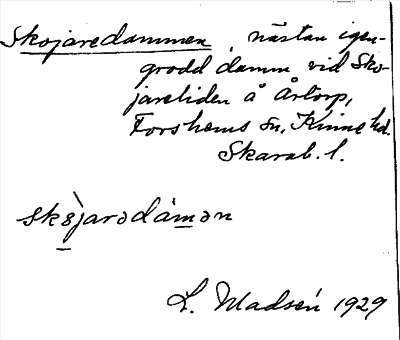 Skojaredammen, nästan igen-
grodd damm vid Sko-
jareliden å Årtorp,
Forshems sn, Kinne hd.
Skarab. l.
skòjarədámən
L. Madsén 1929